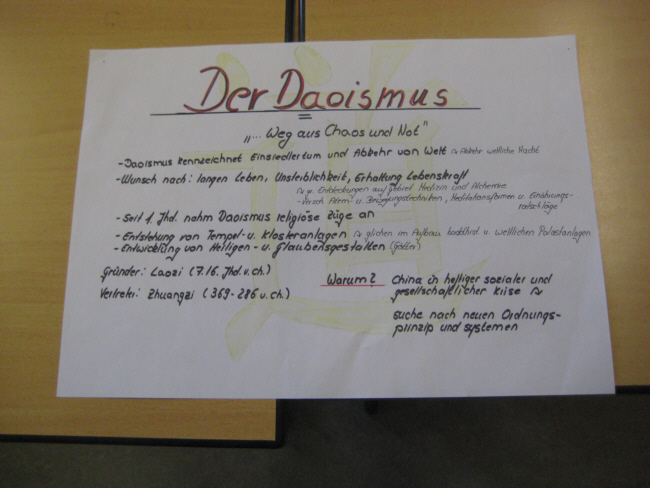 Der Daoismus
„... Weg aus Chaos und Not"
- Daoismus kennzeichnet Einsiedlertum und Abkehr von Welt ↝ Abkehr weltliche Macht
- Wunsch nach: langen Leben, Unsterblichkeit, Erhaltung Lebenskraft
↝ Entdeckungen auf Gebiet Medizin und Alchemie
- versch. Atem- u. Bewegungstechniken, Meditationsformen u. Ernährungs-
ratschläge)
- Seit 1. Jhd. nahm Daoismus religiöse Züge an
- Entstehung von Tempel- u. Klosteranlagen ↝ glichen im Aufbau buddhist. u. weltlichen Palastanlagen
- Entwicklung von Heiligen- u. Glaubensgestalten (Götter)
Gründer: Laozi (7./6. Jhd. v. ch.)
Vertreter: Zhuangzi (369-286 v. ch.)
Warum? China in heftiger sozialer und
gesellschaftlicher Krise ↝
suche nach neuen Ordnungs-
prinzip und systemen